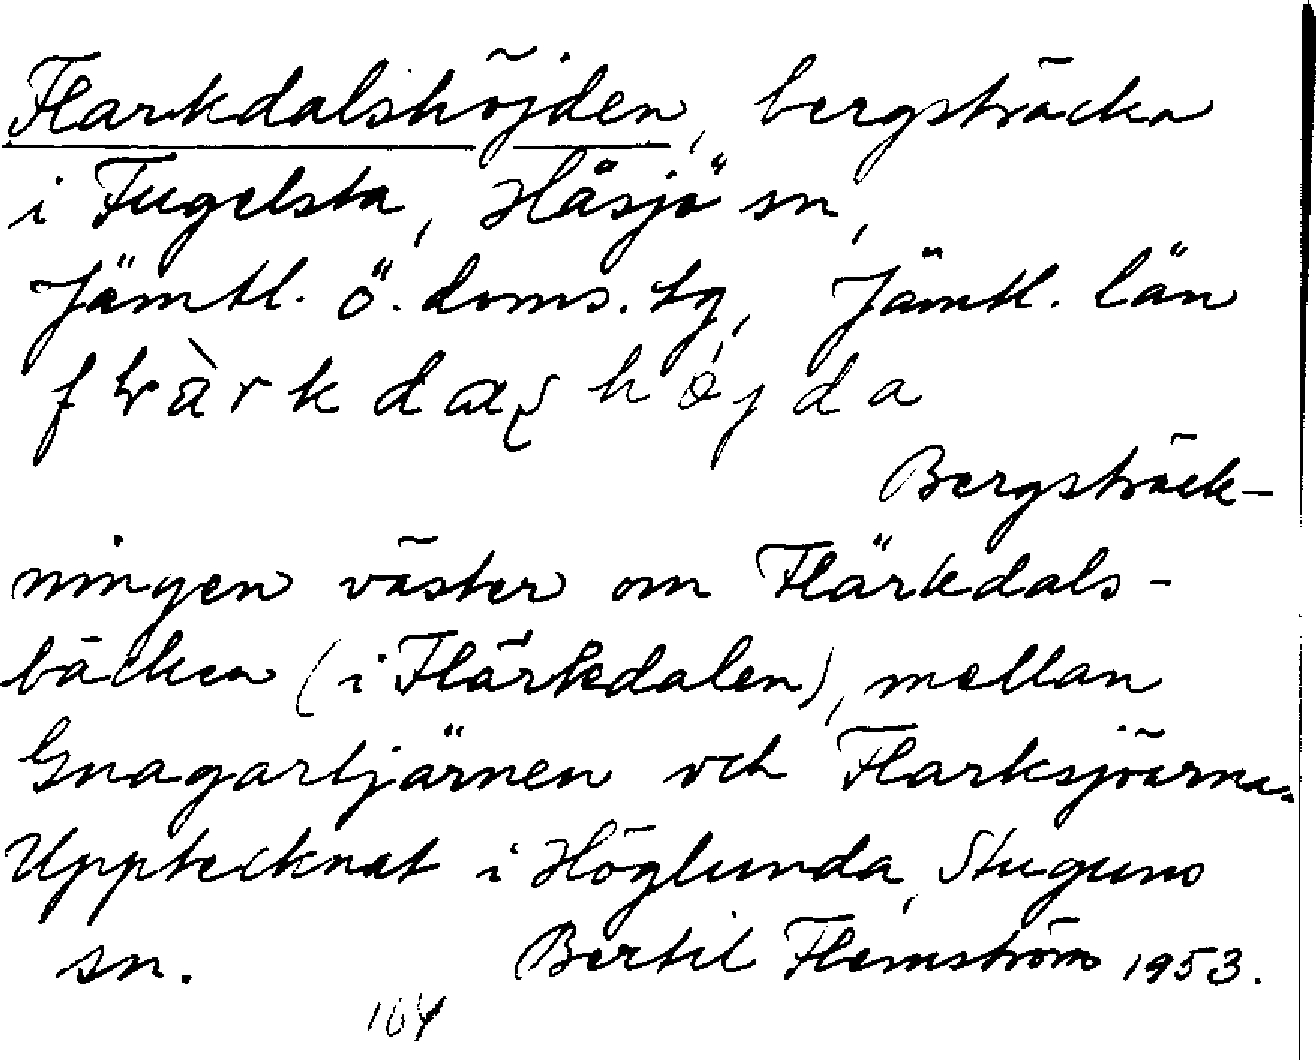 Flarkdalshöjden, bergsträcka
i Fugelsta, Håsjö sn,
Jämtl. ö. doms. tg, Jämtl. län
Bergsträck-
ningen väster om Flärkdals-
bäcken (i Flärkdalen), mellan
Gnagartjärnen och Flarksjöarna.
Upptecknat i Höglunda, Stuguns
sn. Bertil Flemström 1953.
104